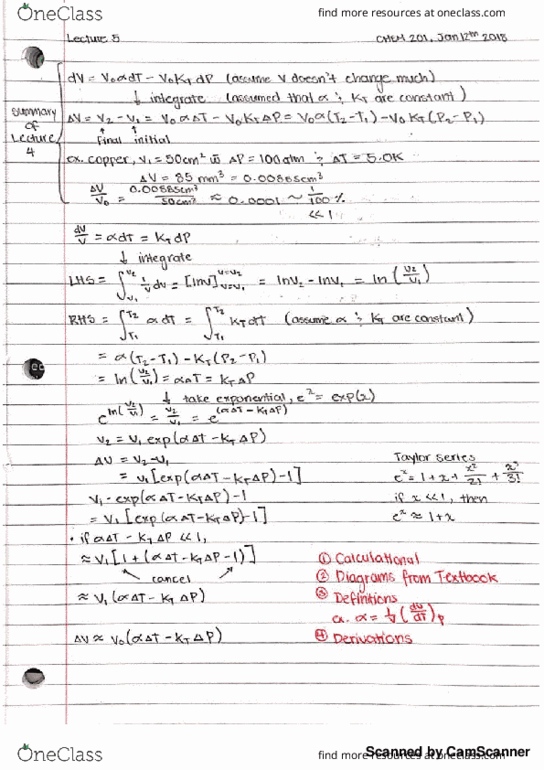 OneClass
find more resources at oneclass.com
Lecture 5
CHEM 201, Jan 12th 2018
dV = V₀αdT - V₀K_T dP (assume V doesn't change much)
↓ integrate (assumed that α & K_T are constant)
Summary of Lecture 4
ΔV = V₂ - V₁ = V₀αΔT - V₀K_TΔP = V₀α(T₂-T₁) - V₀K_T(P₂-P₁)
final initial
ex. copper, V₁ = 50cm³ ΔP = 100atm & ΔT = 5.0K
ΔV = 85 mm³ = 0.00865cm³
ΔV/V₀ = 0.00865cm³/50cm³ ≈ 0.0001 ~ 1/100 %
<< 1
dV/V = αdT = K_T dP
↓ integrate
LHS = ∫_{V₁}^{V₂} 1/V dV = [lnV]_{V=V₁}^{V=V₂} = lnV₂ - lnV₁ = ln(V₂/V₁)
RHS = ∫_{T₁}^{T₂} αdT = ∫_{T₁}^{T₂} K_T dT (assume α & K_T are constant)
= α(T₂-T₁) - K_T(P₂-P₁)
= ln(V₂/V₁) = αΔT = K_TΔP
↓ take exponential, eˣ = exp(x)
e^{ln(V₂/V₁)} = V₂/V₁ = e^{(αΔT - K_TΔP)}
V₂ = V₁ exp(αΔT - K_TΔP)
ΔV = V₂ - V₁
= V₁[exp(αΔT - K_TΔP) - 1]
V₁ - exp(αΔT - K_TΔP) - 1
= V₁[exp(αΔT - K_TΔP) - 1]
Taylor series
eˣ = 1 + x + x²/2! + x³/3!
if x << 1, then
eˣ ≈ 1 + x
• if αΔT - K_TΔP << 1,
≈ V₁[1 + (αΔT - K_TΔP - 1)]
cancel
≈ V₁(αΔT - K_TΔP)
ΔV ≈ V₀(αΔT - K_TΔP)
① Calculational
② Diagrams from Textbook
③ Definitions
α. α = 1/V (dV/dT)_P
④ Derivations
OneClass
find more resources at oneclass.com
Scanned by CamScanner